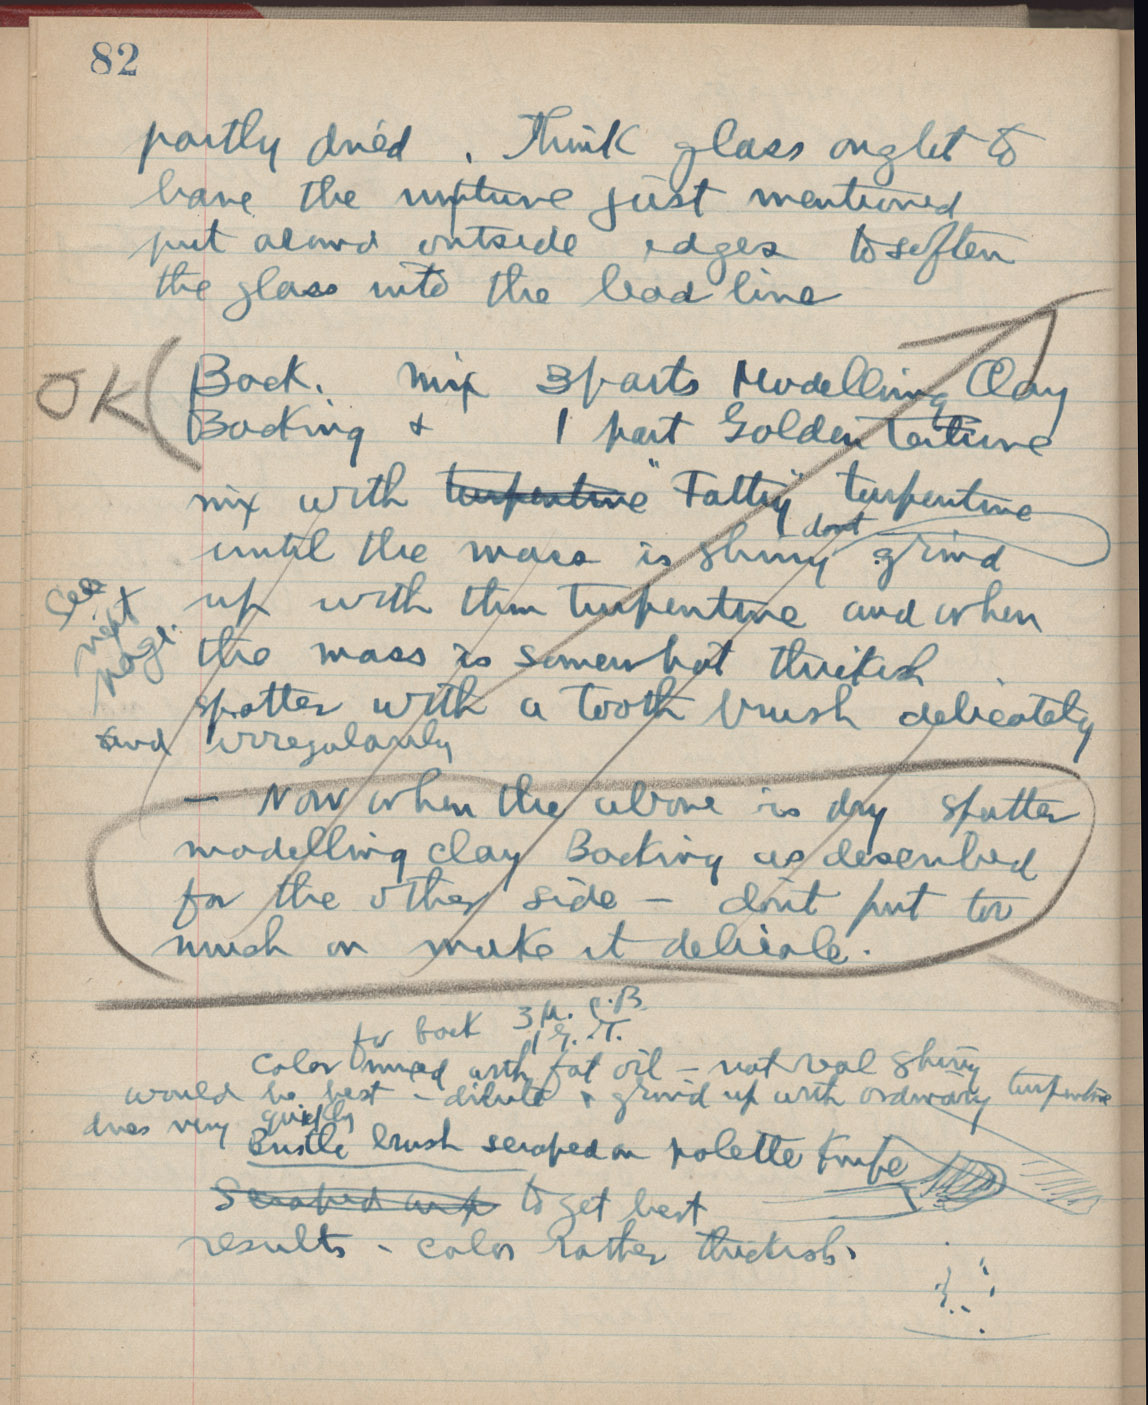 82
partly dried. Think glass ought to
have the mixture just mentioned
put around outside edges to soften
the glass into the lead line
OK
Back. mix 3 parts Modelling Clay
Backing & 1 part Golden Texture
mix with turpentine "Fatty" turpentine
until the mass is shiny dont grind
up with thin turpentine and when
See
next
page.
the mass is somewhat thickish
spatter with a tooth brush delicately
and irregularly
— Now when the above is dry spatter
modelling clay Backing as described
for the other side — dont put too
much on make it delicate.
for back 3 M. C. B.
1 G. T.
Color mixed with fat oil — not real shiny
would be best - dilute & grind up with ordinary turpentine
dries very quickly
Bristle brush scraped on palette knife
Scraped to get best
results - color rather thickish.